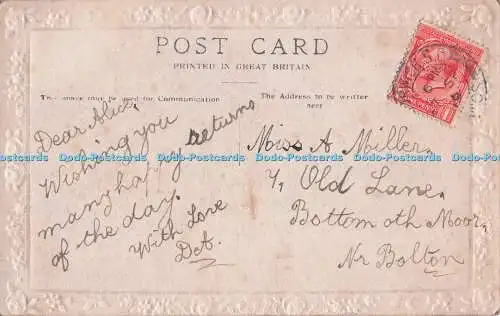 POST CARD
PRINTED IN GREAT BRITAIN
This space may be used for Communication
The Address to be written here
Dear Alice,
Wishing you
many happy returns
of the day.
With Love
Miss A. Miller.
7, Old Lane.
Bottom oth Moor,
Nr Bolton
Dodo-Postcards Dodo-Postcards Dodo-Postcards Dodo-Postcards Dodo-Postcards Dodo-Postcards